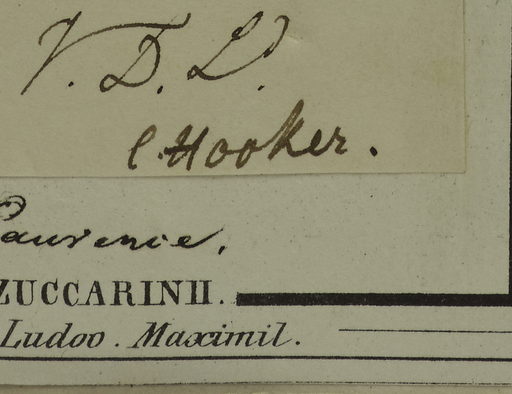 V. D. L.
C. Hooker.
Laurencie.
ZUCCARINII.
Ludov. Maximil.